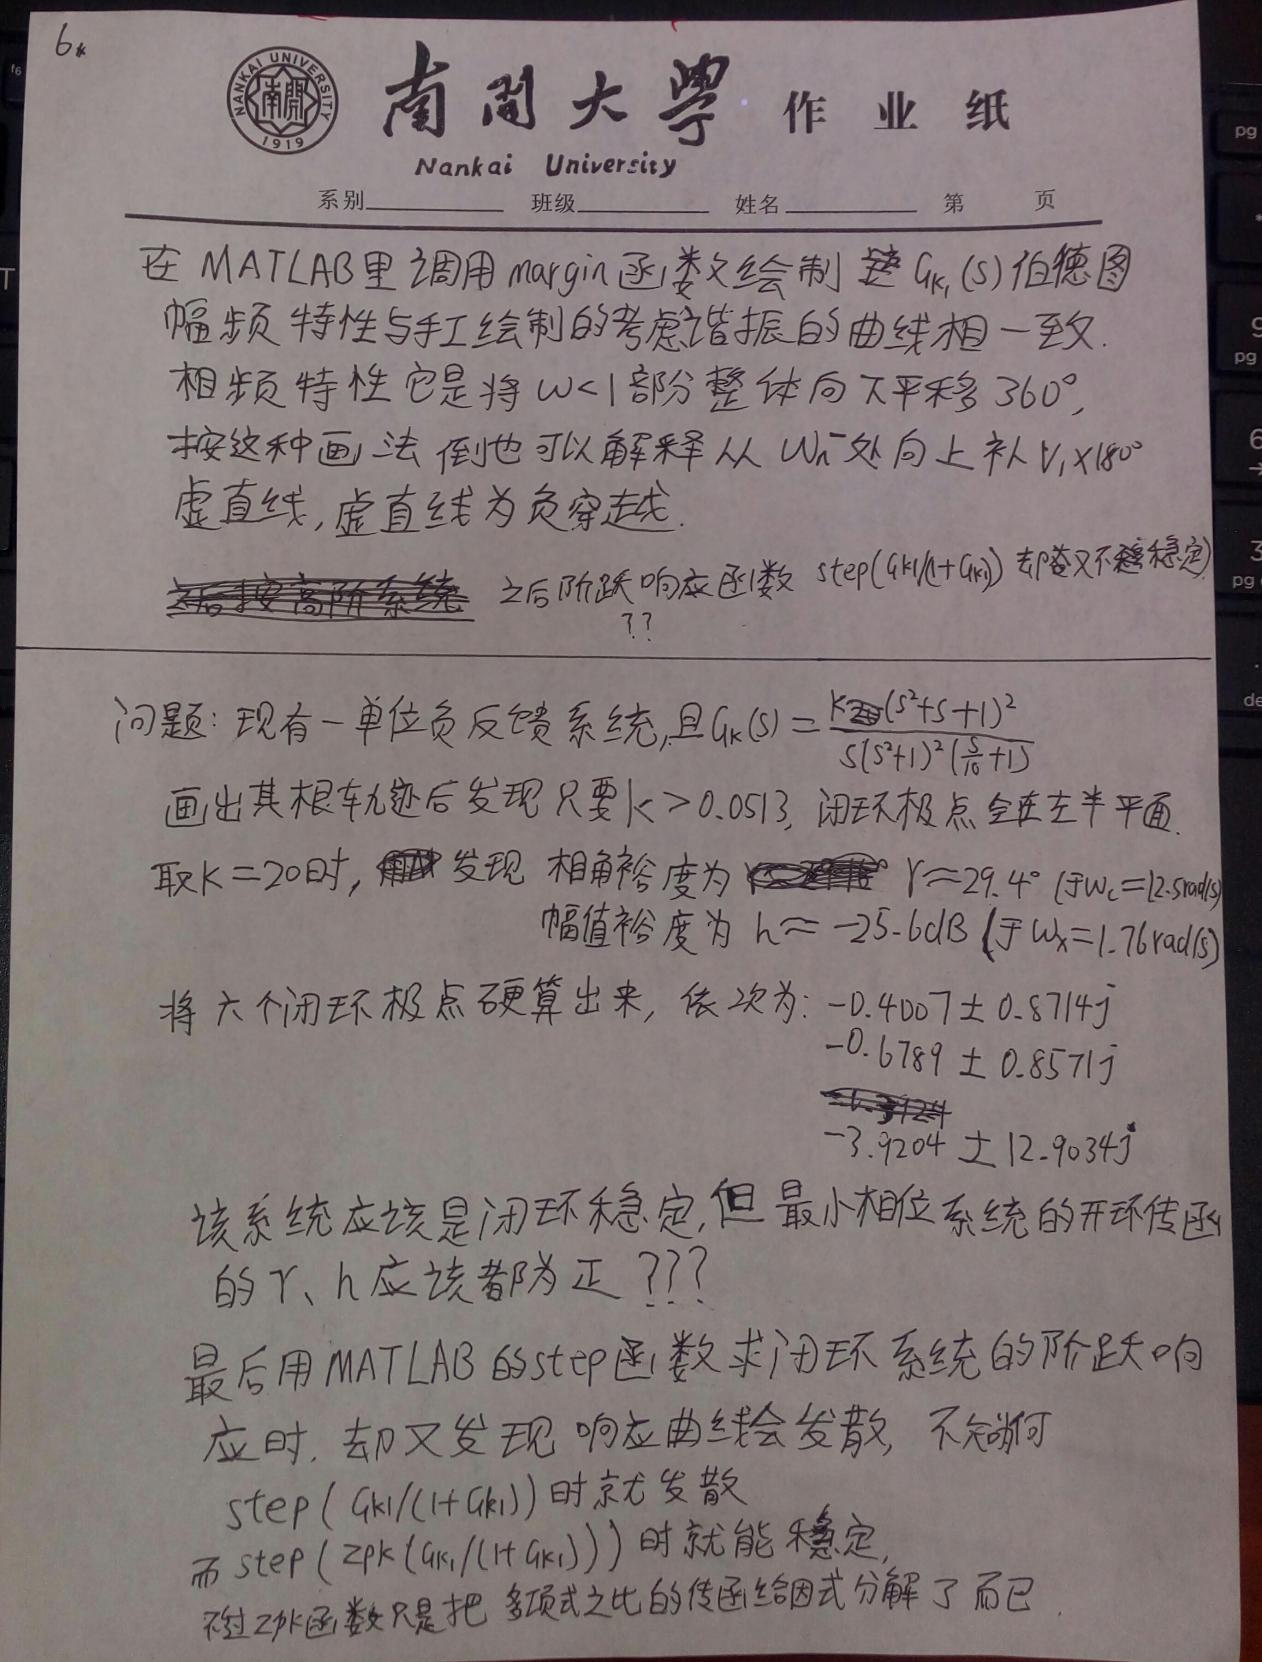 6.
NANKAI UNIVERSITY
南開
1919
南開大學 作业纸
Nankai University
系别 班级 姓名 第 页
在MATLAB里调用margin函数绘制 GK₁(s)伯德图
幅频特性与手工绘制的考虑谐振的曲线相一致.
相频特性它是将ω<1部分整体向下平移360°,
按这种画法倒也可以解释从ωn⁻处向上补ν₁×180°
虚直线,虚直线为负穿越.
之后阶跃响应函数 step(GK1/(1+GK1)) 却又不稳定)
??
问题:现有一单位负反馈系统,且GK(s)=K(s²+s+1)²/s(s²+1)²(s/10+1)
画出其根轨迹后发现只要K>0.0513,闭环极点全在左半平面.
取K=20时, 发现 相角裕度为 γ≈29.4° (于ωc=12.5rad/s)
幅值裕度为 h≈-25.6dB (于ωx=1.76rad/s)
将六个闭环极点硬算出来,依次为: -0.4007±0.8714j
-0.6789±0.8571j
-3.9204±12.9034j
该系统应该是闭环稳定,但最小相位系统的开环传函
的γ、h应该都为正???
最后用MATLAB的step函数求闭环系统的阶跃响
应时.却又发现响应曲线会发散,不知为何
step(GK1/(1+GK1))时就发散
而step(zpk(GK1/(1+GK1)))时就能稳定,
不过zpk函数只是把多项式之比的传函给因式分解了而已.
f6
T
pg
pg
6
3
pg
de